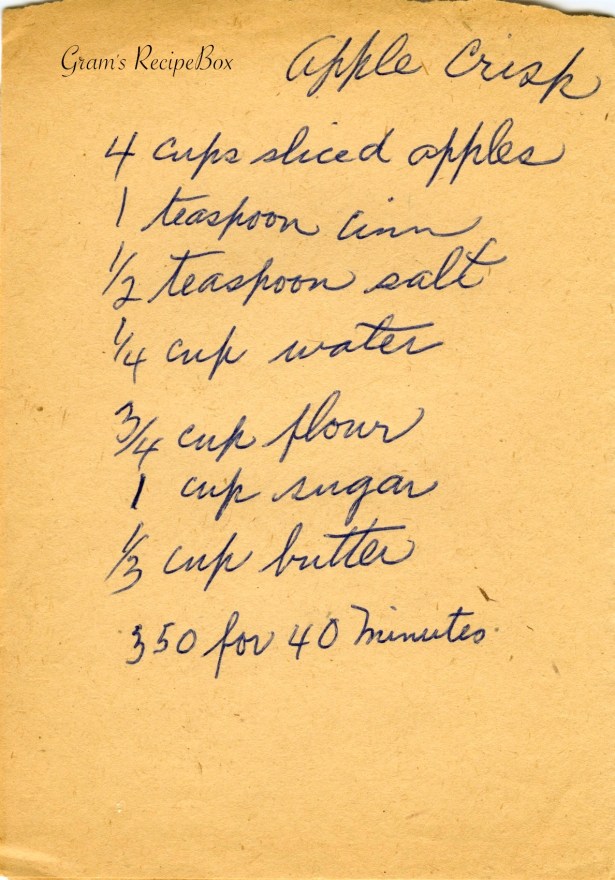 Gram's RecipeBox
Apple Crisp
4 cups sliced apples
1 teaspoon cinn
1/2 teaspoon salt
1/4 cup water
3/4 cup flour
1 cup sugar
1/3 cup butter
350 for 40 minutes.